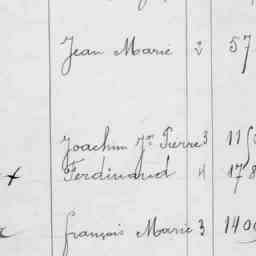 Jean Marie 2 57
Joachim Jn Pierre 3 115
x Ferdinand 4 178
françois Marie 3 140